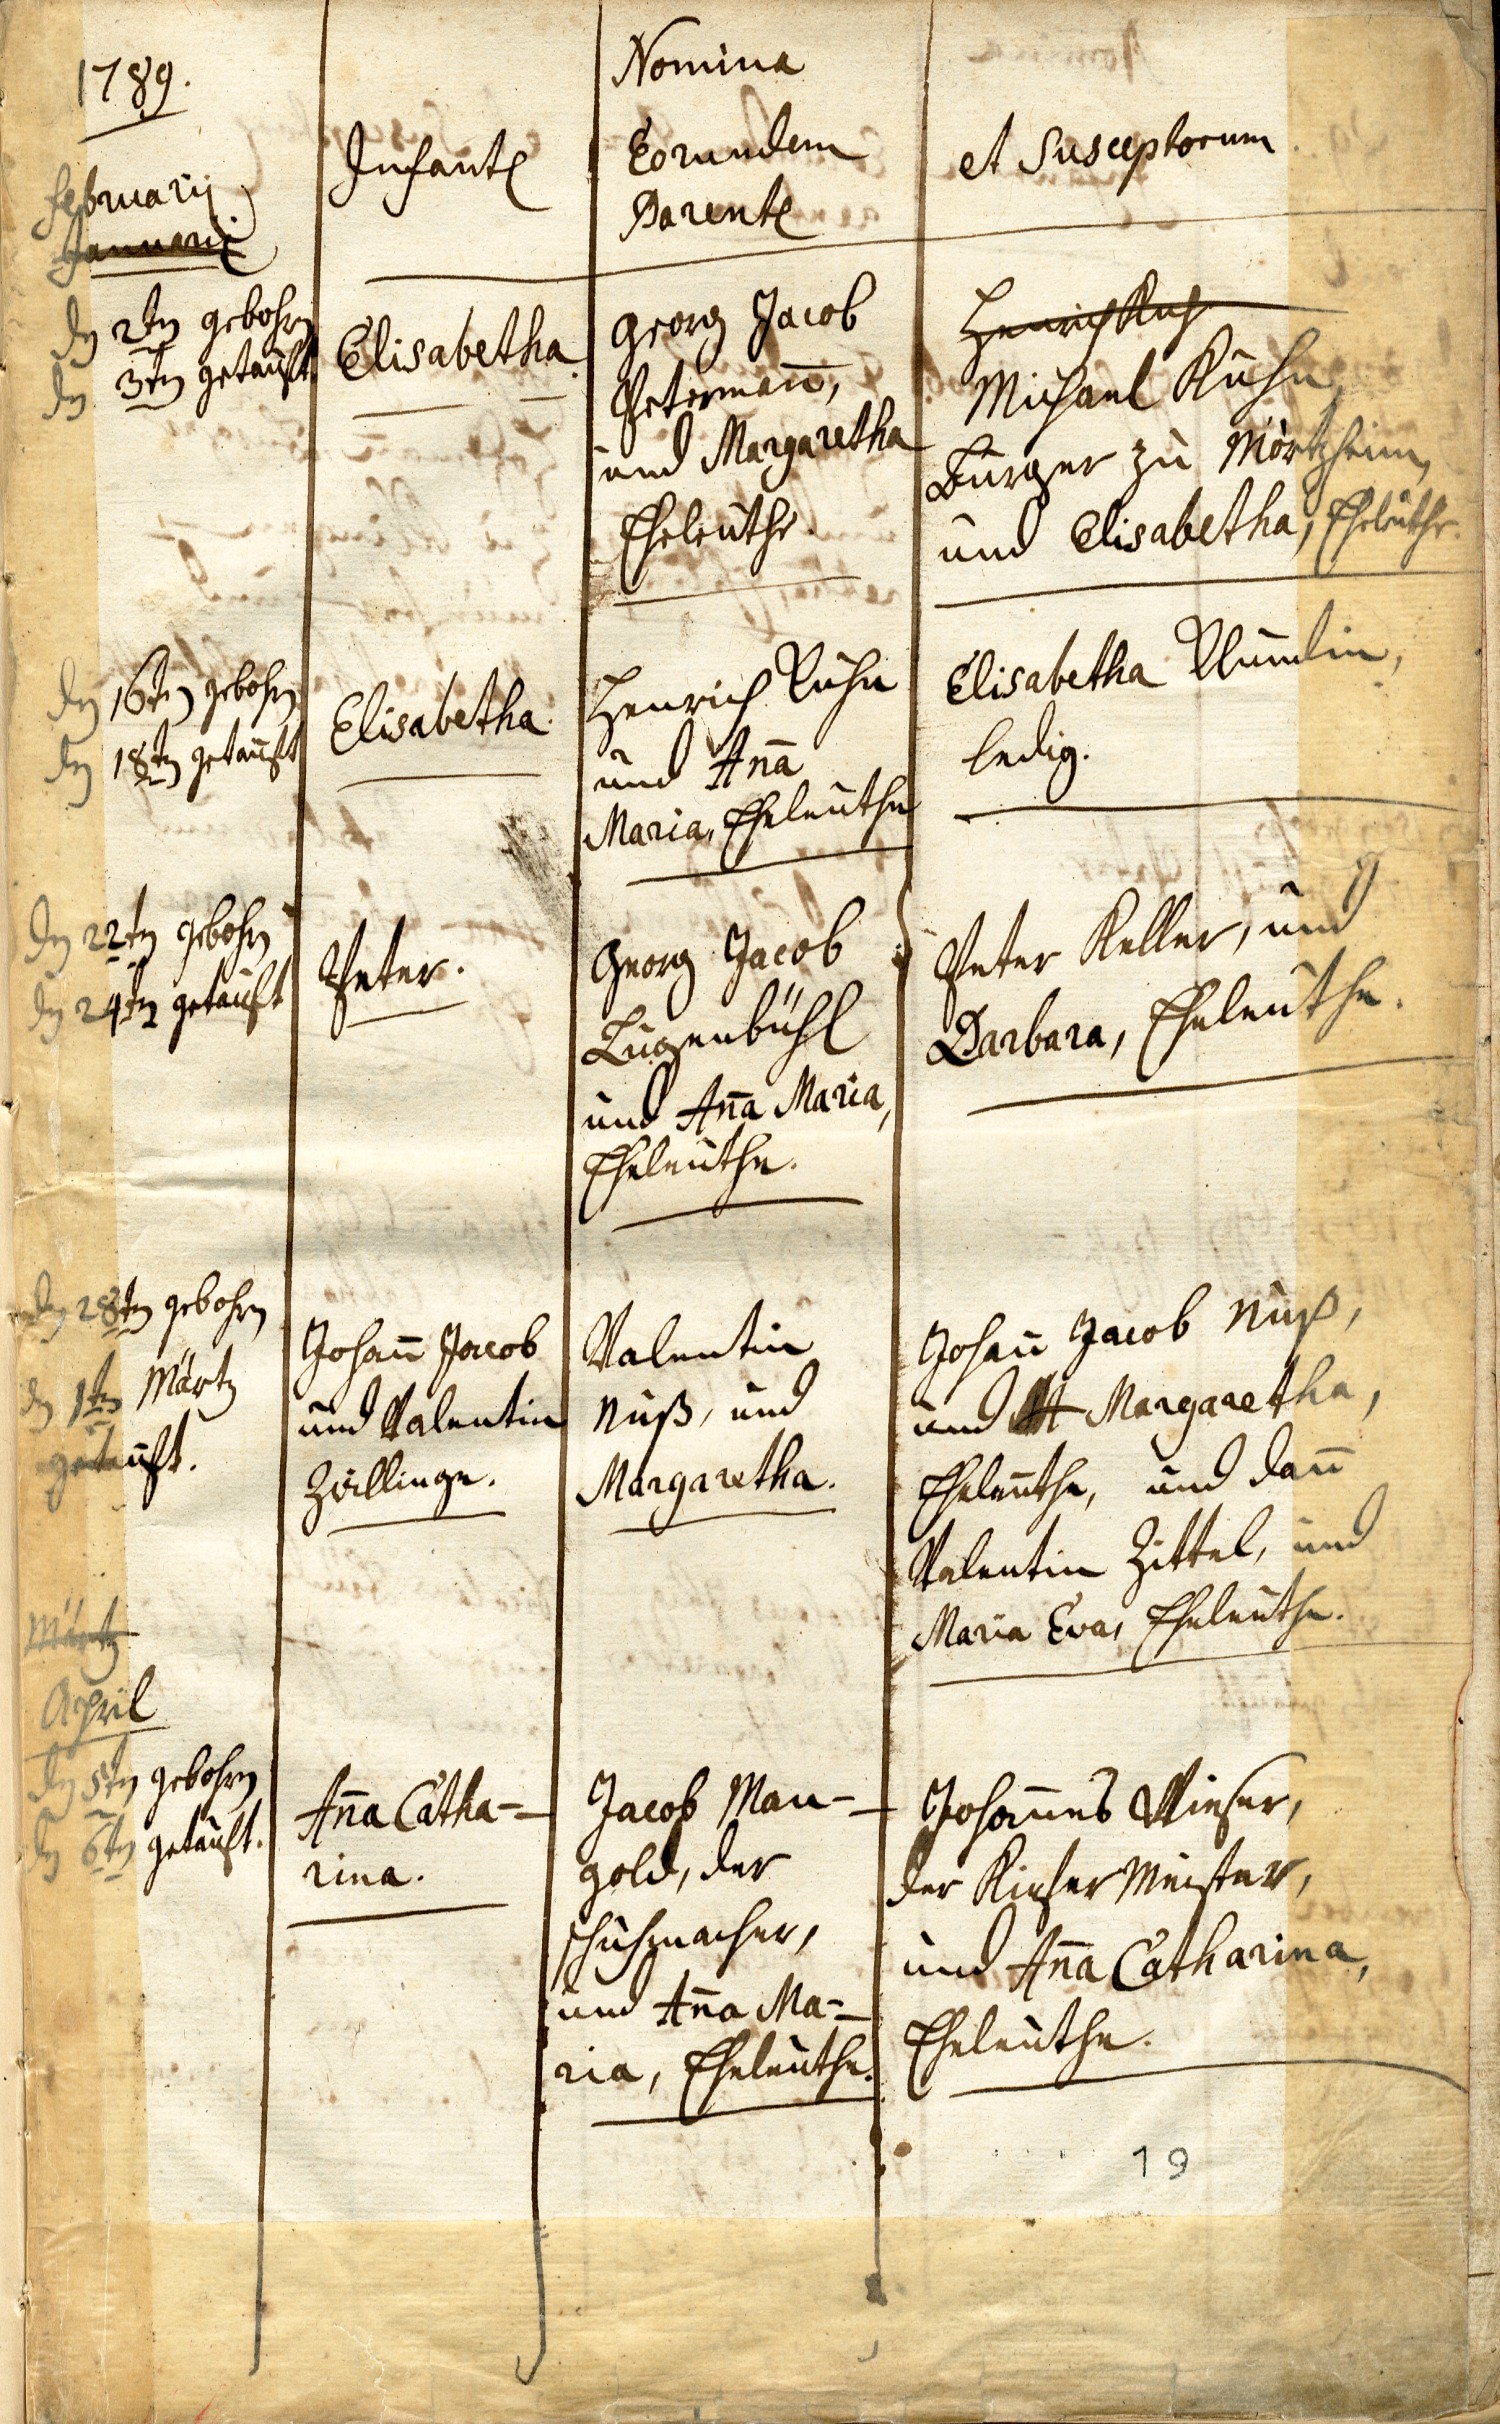 1789.
Nomina
Infant
Eorundem
et Susceptorum
Parent
februarij
Januarij
dn 2tn gebohrn
dn 3tn getauft.
Elisabetha.
Georg Jacob
Petermañ,
und Margaretha
Eheleuthe.
Henrich Kuh
Michael Kuhn,
Burger zu Mörtzheim,
und Elisabetha, Eheleuthe.
dn 16tn gebohrn
dn 18tn getauft
Elisabetha.
Henrich Kuhn
und Aña
Maria, Eheleuthe
Elisabetha
ledig.
dn 22tn gebohrn
dn 24tn getauft
Peter.
Georg Jacob
Lugenbühl
und Aña Maria,
Eheleuthe.
Peter Keller, und
Barbara, Eheleuthe.
dn 28tn gebohrn
dn 1tn Märtz
getauft.
Johañ Jacob
und Valentin
Zwillinge.
Valentin
Nuß, und
Margaretha.
Johañ Jacob Nuß,
und Margaretha,
Eheleuthe, und dañ
Valentin Zittel, und
Maria Eva, Eheleuthe.
Märtz
April
dn 5tn gebohrn
dn 6tn getauft.
Aña Catha-
rina.
Jacob Man-
gold, der
schuhmacher,
und Aña Ma-
ria, Eheleuthe.
Johañes Wieser,
der Kiefer Meister,
und Aña Catharina,
Eheleuthe.
19